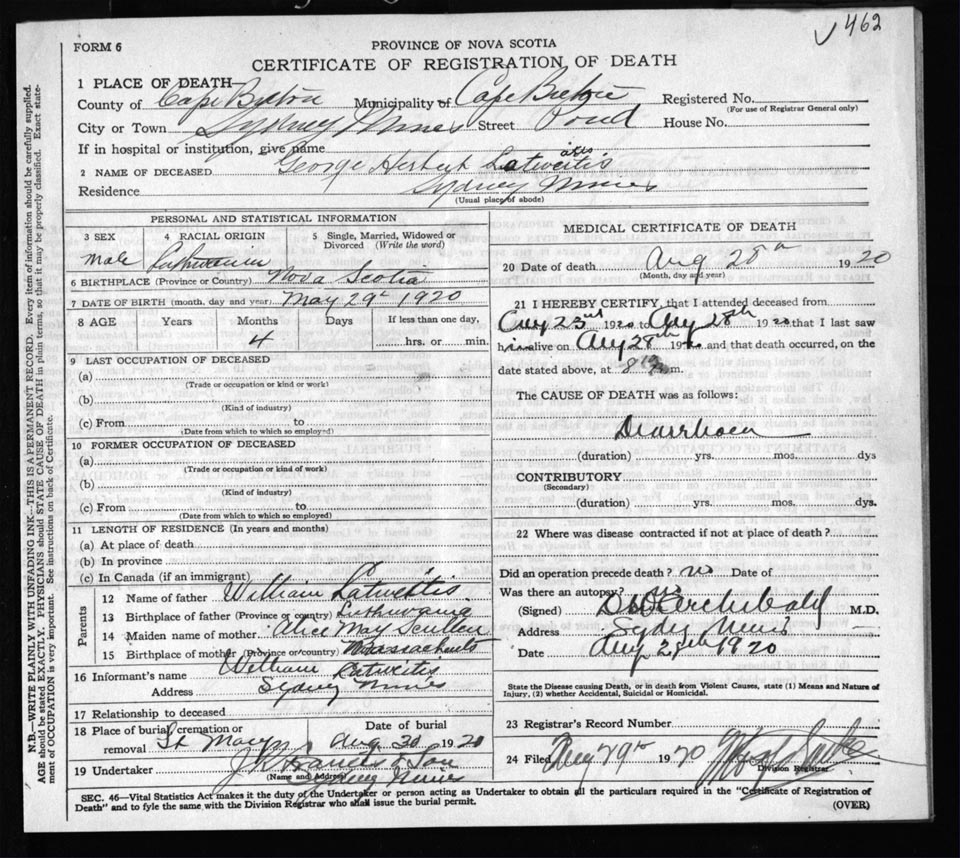 462
FORM 6
PROVINCE OF NOVA SCOTIA
CERTIFICATE OF REGISTRATION OF DEATH
1 PLACE OF DEATH—
County of Cape Breton Municipality of Cape Breton Registered No.
(For use of Registrar General only)
City or Town Sydney Mines Street Pond House No.
If in hospital or institution, give name
2 NAME OF DECEASED George Herbert Latweitis
Residence Sydney Mines
(Usual place of abode)
PERSONAL AND STATISTICAL INFORMATION
3 SEX 4 RACIAL ORIGIN 5 Single, Married, Widowed or Divorced (Write the word)
Male
6 BIRTHPLACE (Province or Country) Nova Scotia
7 DATE OF BIRTH (month, day and year) May 29th 1920
8 AGE Years Months Days If less than one day,
4 hrs. or min.
9 LAST OCCUPATION OF DECEASED
(a)
(Trade or occupation or kind or work)
(b)
(Kind of industry)
(c) From to
(Date from which to which so employed)
10 FORMER OCCUPATION OF DECEASED
(a)
(Trade or occupation or kind of work)
(b)
(Kind of industry)
(c) From to
(Date from which to which so employed)
11 LENGTH OF RESIDENCE (In years and months)
(a) At place of death
(b) In province
(c) In Canada (if an immigrant)
Parents
12 Name of father William Latweitis
13 Birthplace of father (Province or country) Luthuvania
14 Maiden name of mother Alice May
15 Birthplace of mother (Province or country) Massachusetts
16 Informant's name William Latweitis
Address Sydney Mines
17 Relationship to deceased
18 Place of burial, cremation or removal St Marys Date of burial Aug 30 1920
19 Undertaker J W Francis & Son
(Name and Address) Sydney Mines
MEDICAL CERTIFICATE OF DEATH
20 Date of death Aug 28th 1920
(Month, day and year)
21 I HEREBY CERTIFY, that I attended deceased from
Aug 23rd 1920 to Aug 28th 1920 that I last saw
him alive on Aug 28th 1920 and that death occurred, on the
date stated above, at 8 m.
The CAUSE OF DEATH was as follows:
Diarrhoea
(duration) yrs. mos. dys
CONTRIBUTORY
(Secondary)
(duration) yrs. mos. dys.
22 Where was disease contracted if not at place of death?
Did an operation precede death? no Date of
Was there an autopsy?
(Signed) Archibald M.D.
Address Sydney Mines
Date Aug 28th 1920
State the Disease causing Death, or in death from Violent Causes, state (1) Means and Nature of
Injury, (2) whether Accidental, Suicidal or Homicidal.
23 Registrar's Record Number
24 Filed Aug 29th 1920
Division Registrar
SEC. 46—Vital Statistics Act makes it the duty of the Undertaker or person acting as Undertaker to obtain all the particulars required in the "Certificate of Registration of
Death" and to fyle the same with the Division Registrar who shall issue the burial permit. (OVER)
N.B.—WRITE PLAINLY WITH UNFADING INK—THIS IS A PERMANENT RECORD. Every item of information should be carefully supplied.
AGE should be stated EXACTLY. PHYSICIANS should STATE CAUSE OF DEATH in plain terms, so that it may be properly classified. Exact state-
ment of OCCUPATION is very important. See instructions on back of Certificate.